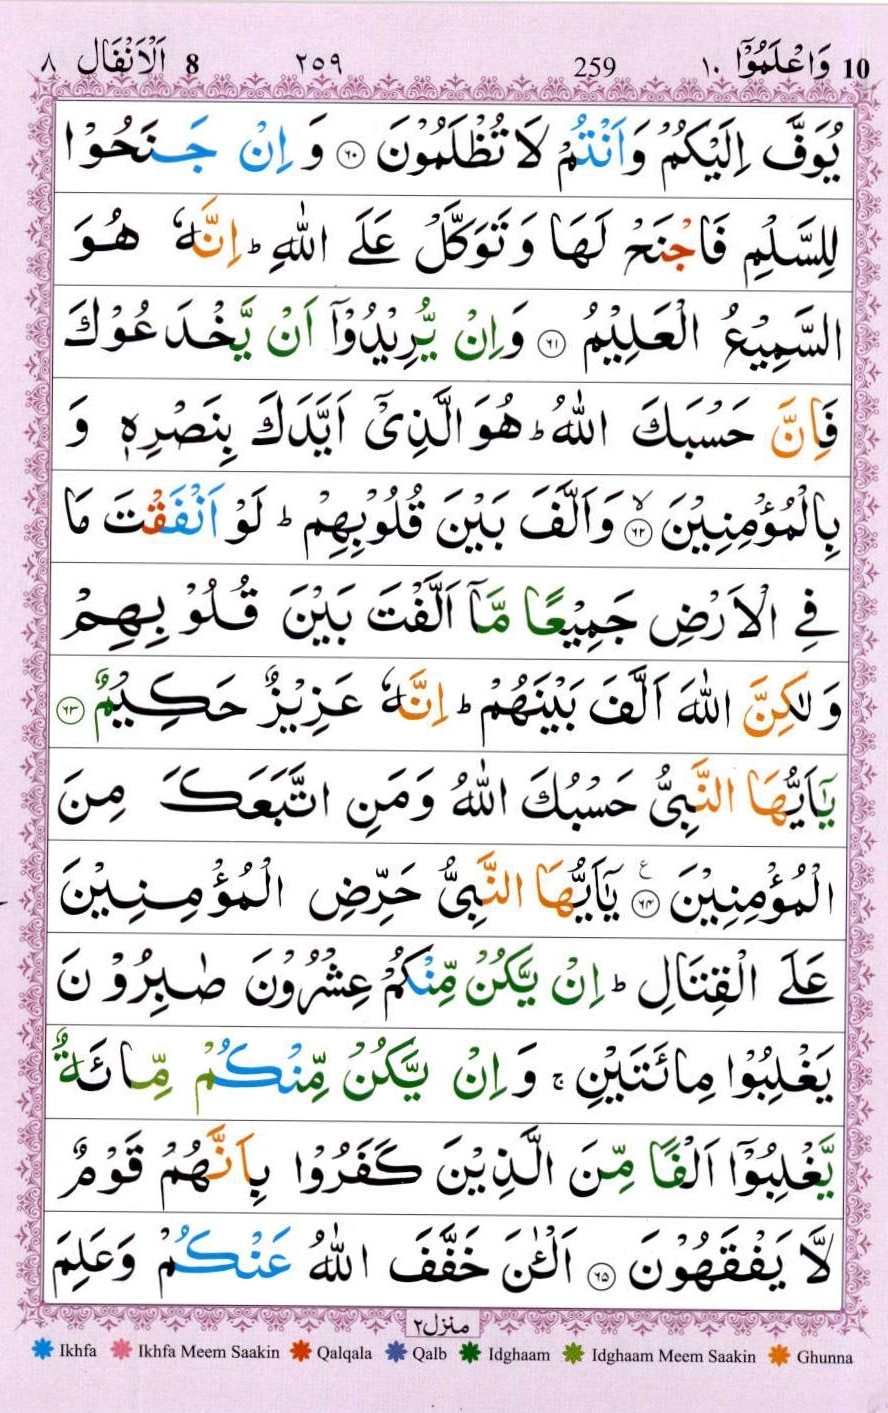 8 اَلۡاَنۡفَال ٨ ٢٥٩ 259 وَاعۡلَمُوۡۤا ١٠ 10
يُوَفَّ اِلَيۡكُمۡ وَاَنۡتُمۡ لَا تُظۡلَمُوۡنَ ۝٦٠ وَ اِنۡ جَنَحُوۡا
لِلسَّلۡمِ فَاجۡنَحۡ لَهَا وَ تَوَكَّلۡ عَلَى اللّٰهِ ؕ اِنَّهٗ هُوَ
السَّمِيۡعُ الۡعَلِيۡمُ ۝٦١ وَاِنۡ يُّرِيۡدُوۡۤا اَنۡ يَّخۡدَعُوۡكَ
فَاِنَّ حَسۡبَكَ اللّٰهُ ؕ هُوَ الَّذِىۡۤ اَيَّدَكَ بِنَصۡرِهٖ وَ
بِالۡمُؤۡمِنِيۡنَ ۙ۝٦٢ وَاَلَّفَ بَيۡنَ قُلُوۡبِهِمۡ ؕ لَوۡ اَنۡفَقۡتَ مَا
فِى الۡاَرۡضِ جَمِيۡعًا مَّاۤ اَلَّفۡتَ بَيۡنَ قُلُوۡبِهِمۡ
وَلٰكِنَّ اللّٰهَ اَلَّفَ بَيۡنَهُمۡ ؕ اِنَّهٗ عَزِيۡزٌ حَكِيۡمٌ ۝٦٣
يٰۤاَيُّهَا النَّبِىُّ حَسۡبُكَ اللّٰهُ وَمَنِ اتَّبَعَكَ مِنَ
الۡمُؤۡمِنِيۡنَ ۝٦٤ ع يٰۤاَيُّهَا النَّبِىُّ حَرِّضِ الۡمُؤۡمِنِيۡنَ
عَلَى الۡقِتَالِ ؕ اِنۡ يَّكُنۡ مِّنۡكُمۡ عِشۡرُوۡنَ صٰبِرُوۡنَ
يَغۡلِبُوۡا مِائَتَيۡنِ ۚ وَ اِنۡ يَّكُنۡ مِّنۡكُمۡ مِّائَةٌ
يَّغۡلِبُوۡۤا اَلۡفًا مِّنَ الَّذِيۡنَ كَفَرُوۡا بِاَنَّهُمۡ قَوۡمٌ
لَّا يَفۡقَهُوۡنَ ۝٦٥ اَلۡـٰٔنَ خَفَّفَ اللّٰهُ عَنۡكُمۡ وَعَلِمَ
منزل ٢
Ikhfa Ikhfa Meem Saakin Qalqala Qalb Idghaam Idghaam Meem Saakin Ghunna